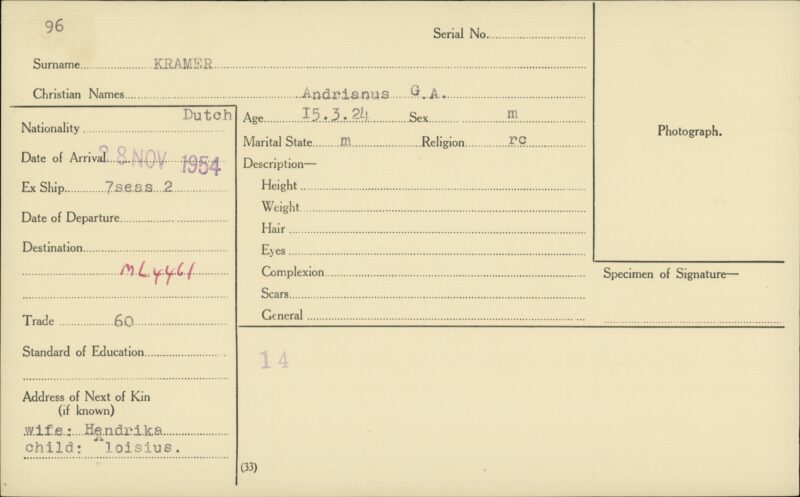 96
Serial No.
Surname KRAMER
Christian Names Andrianus G.A.
Nationality Dutch
Date of Arrival 28 NOV 1954
Ex Ship 7seas 2
Date of Departure
Destination
ML4461
Trade 60
Standard of Education
Address of Next of Kin
(if known)
wife: Hendrika
child: Aloisius.
Age 15.3.24 Sex m
Marital State m Religion rc
Description—
Height
Weight
Hair
Eyes
Complexion
Scars
General
14
(33)
Photograph.
Specimen of Signature—